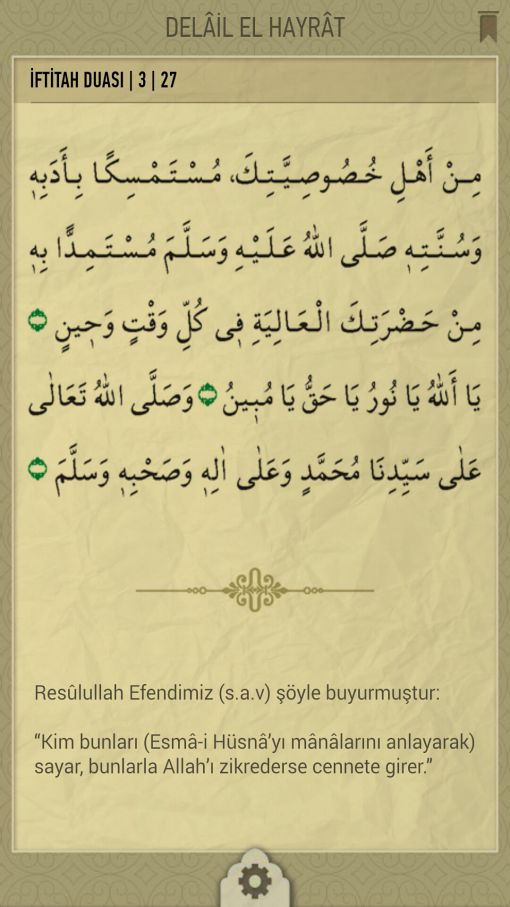 DELÂİL EL HAYRÂT
İFTİTAH DUASI | 3 | 27
مِنْ أَهْلِ خُصُوصِيَّتِكَ، مُسْتَمْسِكًا بِأَدَبِهِ
وَسُنَّتِهِ صَلَّى اللهُ عَلَيْهِ وَسَلَّمَ مُسْتَمِدًّا بِهِ
مِنْ حَضْرَتِكَ الْعَالِيَةِ فِي كُلِّ وَقْتٍ وَحِينٍ
يَا أَللهُ يَا نُورُ يَا حَقُّ يَا مُبِينُ وَصَلَّى اللهُ تَعَالٰى
عَلٰى سَيِّدِنَا مُحَمَّدٍ وَعَلٰى اٰلِهِ وَصَحْبِهِ وَسَلَّمَ
Resûlullah Efendimiz (s.a.v) şöyle buyurmuştur:
“Kim bunları (Esmâ-i Hüsnâ’yı mânâlarını anlayarak)
sayar, bunlarla Allah’ı zikrederse cennete girer.”